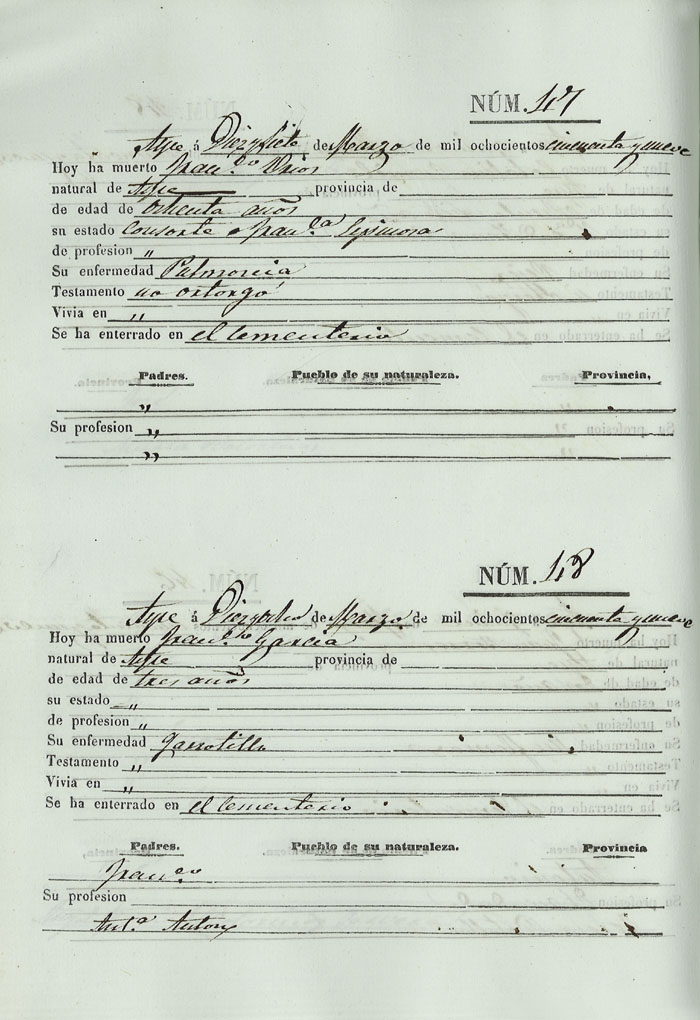 NÚM. 47
Aspe á Diezysiete de Marzo de mil ochocientos cincuenta y nueve
Hoy ha muerto Fran.co
natural de Aspe provincia de
de edad de ochenta años
su estado Consorte Fran.ca Espinosa
de profesion "
Su enfermedad Pulmonia
Testamento no otorgó
Vivia en "
Se ha enterrado en el Cementerio
Padres. Pueblo de su naturaleza. Provincia,
"
Su profesion "
"
NÚM. 48
Aspe á Diezyocho de Marzo de mil ochocientos cincuenta y nueve
Hoy ha muerto Fran.co Garcia
natural de Aspe provincia de
de edad de tres años
su estado "
de profesion "
Su enfermedad Garrotillo
Testamento "
Vivia en "
Se ha enterrado en el Cementerio
Padres. Pueblo de su naturaleza. Provincia
Fran.co
Su profesion
Ant.a Anton